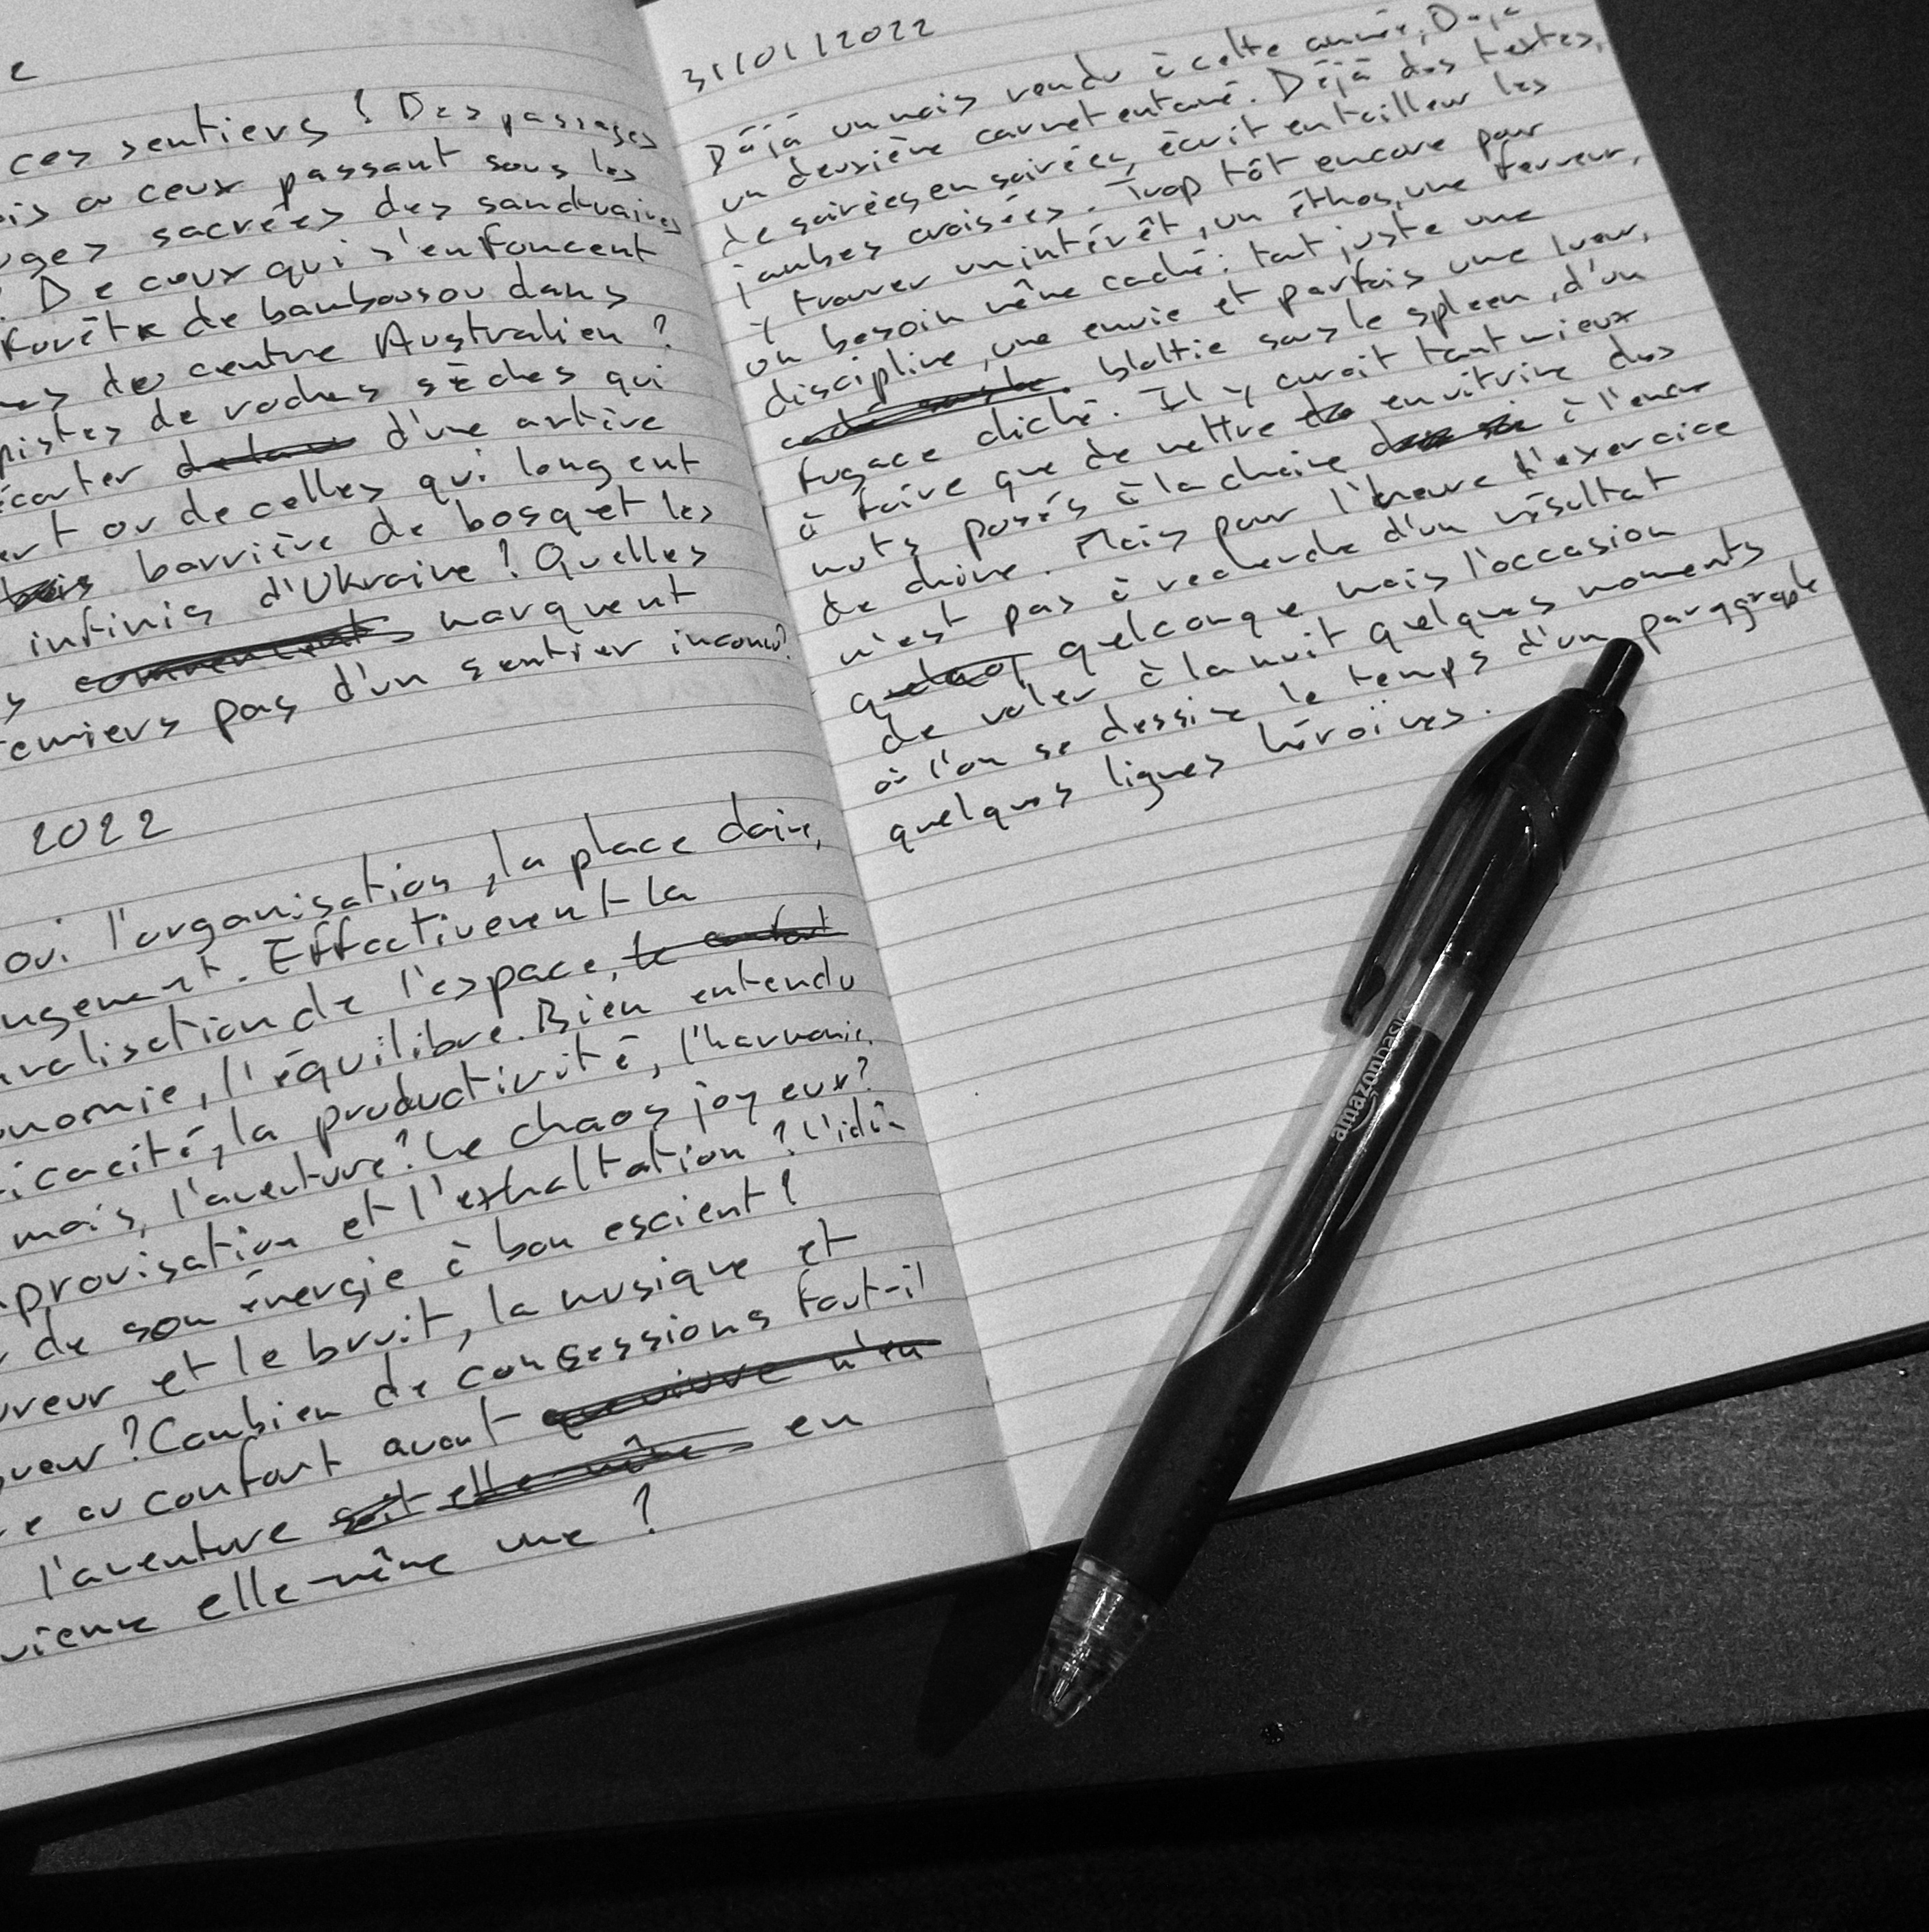 ces sentiers ! Des passages
ceux passant sous les
sacrées des sanctuaires
De ceux qui s'enfoncent
forêt de bambous ou dans
centre Australien ?
pistes de roches sèches qui
d'une artère
ou de celles qui longent
barrière de bosquet les
infinis d'Ukraine ? Quelles
marquent
pas d'un sentier inconnu ?
2022
l'organisation, la place claire,
Effectivement la
de l'espace, le confort
l'équilibre. Bien entendu
la productivité, l'harmonie,
mais, l'aventure ? Le chaos joyeux ?
et l'exhaltation ? L'idée
de son énergie à bon escient ?
et le bruit, la musique et
? Combien de concessions faut-il
au confort avant que vivre n'en
l'aventure soit elle-même en
elle-même une ?
31/01/2022
Déjà un mois rendu à cette année, Déjà
un deuxième carnet entamé. Déjà des textes,
de soirées en soirées, écrit en tailleur les
jambes croisées. Trop tôt encore pour
y trouver un intérêt, un éthos, une ferveur,
un besoin même caché : tout juste une
discipline, une envie et parfois une lueur,
blottie sous le spleen, d'un
fugace cliché. Il y aurait tant mieux
à faire que de mettre en vitrine des
mots posés à la chaîne à l'encre
de chine. Mais pour l'heure l'exercice
n'est pas à recherche d'un résultat
quelconque mais l'occasion
de voler à la nuit quelques moments
où l'on se dessine le temps d'un paragraphe
quelques lignes héroïnes.
amazonbasics